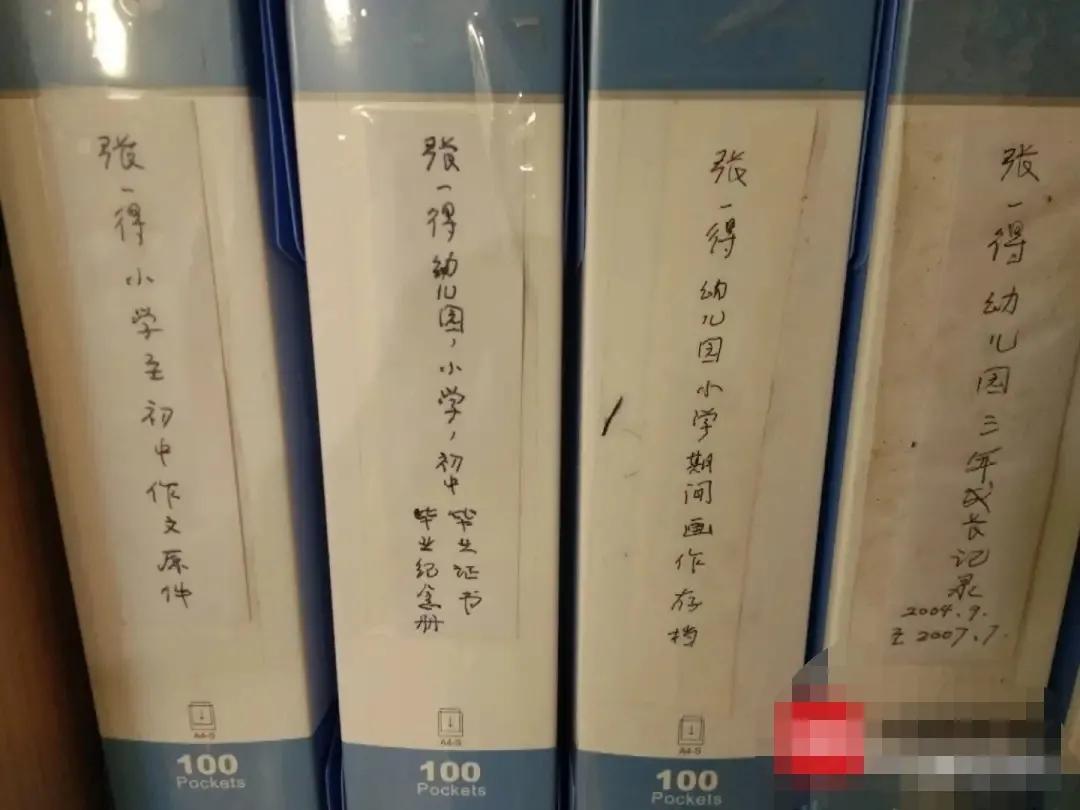 张一得小学至初中作文原件
A4-S
100
Pockets
张一得幼儿园，小学，初中
毕业证书
毕业纪念册
A4-S
100
Pockets
张一得幼儿园小学期间画作存档
A4-S
100
Pockets
张一得幼儿园三年成长记录
2004.9.
至2007.7.